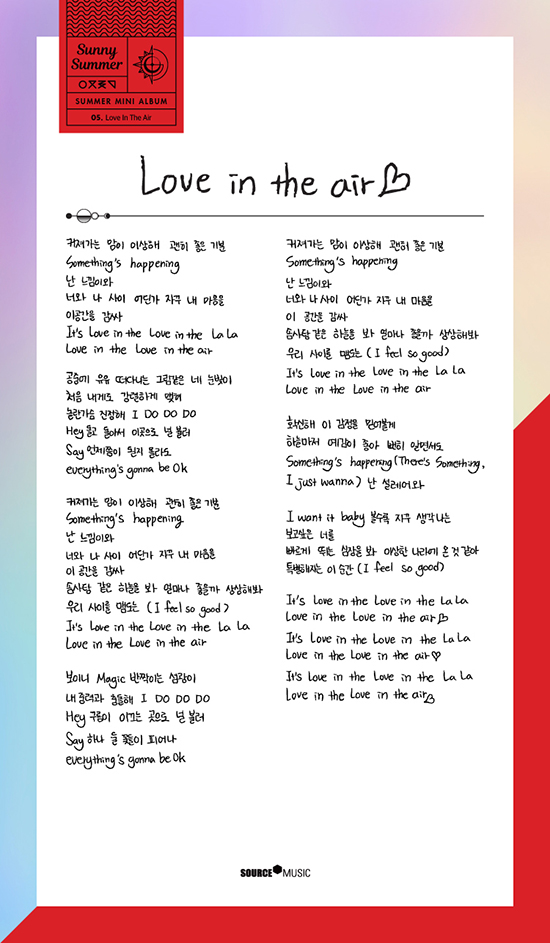 Sunny
Summer
SUMMER MINI ALBUM
05. Love In The Air
Love in the air♡
커져가는 맘이 이상해 괜히 좋은 기분
Something's happening
난 느낌이와
너와 나 사이 어딘가 자꾸 내 마음을
이공간을 감싸
It's Love in the Love in the La La
Love in the Love in the air
공중에 유유 떠다니는 그림같은 네 눈빛이
처음 내게도 강렬하게 맺혀
놀란가슴 진정해 I DO DO DO
Hey 돌고 돌아서 이곳으로 널 불러
Say 언제쯤이 될지 몰라도
everything's gonna be Ok
커져가는 맘이 이상해 괜히 좋은 기분
Something's happening
난 느낌이와
너와 나 사이 어딘가 자꾸 내 마음을
이 공간을 감싸
솜사탕 같은 하늘을 봐 얼마나 좋을까 상상해봐
우리 사이를 맴도는 (I feel so good)
It's Love in the Love in the La La
Love in the Love in the air
보이니 Magic 반짝이는 심장이
내 중력과 충돌해 I DO DO DO
Hey 구름이 이끄는 곳으로 널 불러
Say 하나 둘 꽃들이 피어나
everything's gonna be Ok
커져가는 맘이 이상해 괜히 좋은 기분
Something's happening
난 느낌이와
너와 나 사이 어딘가 자꾸 내 마음을
이 공간을 감싸
솜사탕 같은 하늘을 봐 얼마나 좋을까 상상해봐
우리 사이를 맴도는 (I feel so good)
It's Love in the Love in the La La
Love in the Love in the air
확실해 이 감정을 믿어볼게
하늘마저 예감이 좋아 뻔히 알면서도
Something's happening (There's Something,
I just wanna) 난 설레어와
I want it baby 볼수록 자꾸 생각나는
보고싶은 너를
빠르게 뛰는 심장을 봐 이상한 나라에 온 것 같아
특별해지는 이 순간 (I feel so good)
It's Love in the Love in the La La
Love in the Love in the air♡
It's Love in the Love in the La La
Love in the Love in the air♡
It's Love in the Love in the La La
Love in the Love in the air♡
SOURCE MUSIC